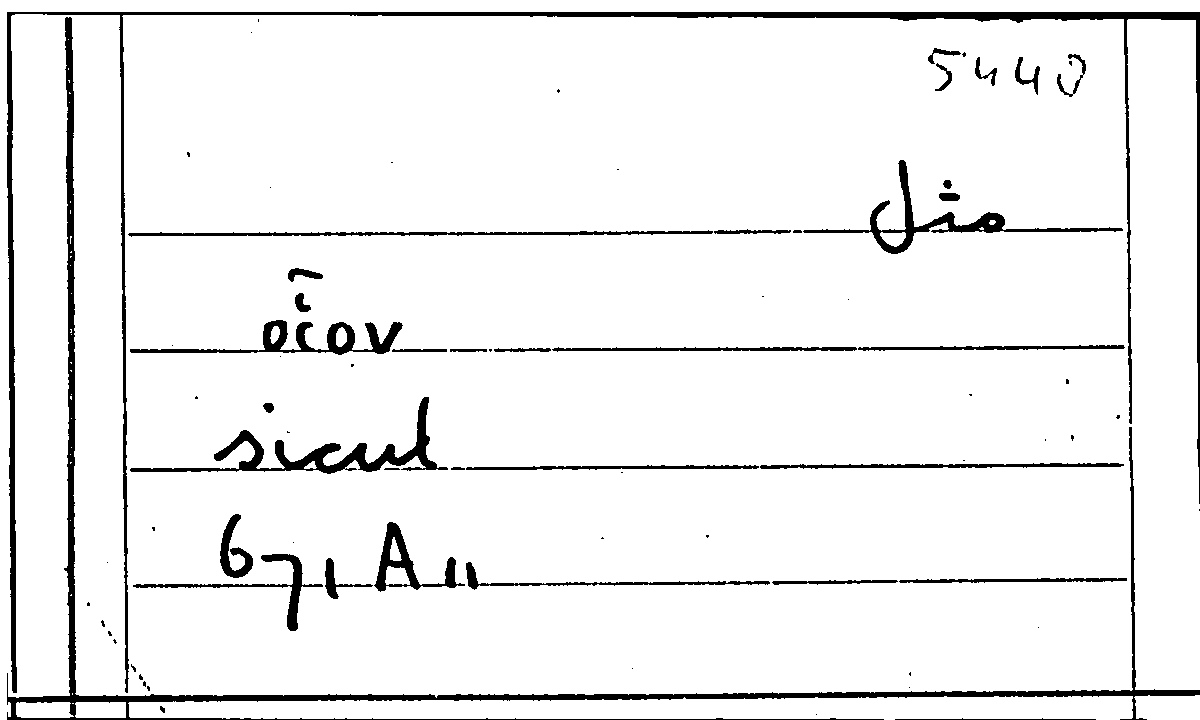 5440
οἷον
sicul
671 A 11